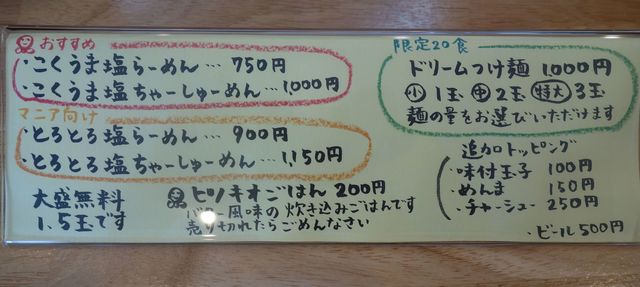 おすすめ
・こくうま塩らーめん…750円
・こくうま塩ちゃーしゅーめん…1,000円
マニア向け
・とろとろ塩らーめん…900円
・とろとろ塩ちゃーしゅーめん…1,150円
大盛無料
1.5玉です
ピノキオごはん 200円
バター風味の炊き込みごはんです
売り切れたらごめんなさい
限定20食
ドリームつけ麺 1,000円
小 1玉 中 2玉 特大 3玉
麺の量をお選びいただけます
追加トッピング
・味付玉子 100円
・めんま 150円
・チャーシュー 250円
・ビール 500円